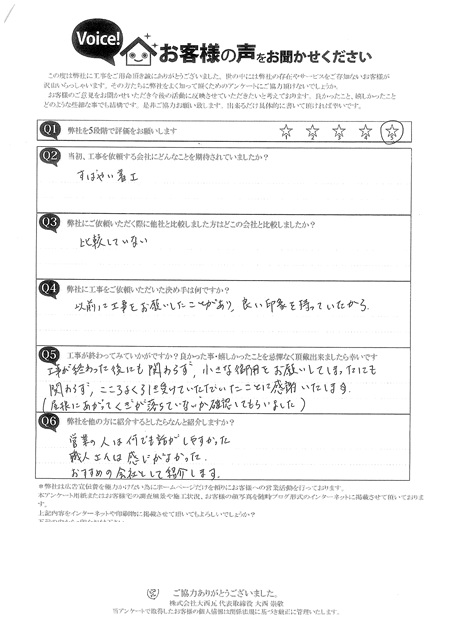 Voice!
お客様の声をお聞かせください
この度は弊社に工事をご用命頂き誠にありがとうございました。世の中には弊社の存在やサービスをご存知ないお客様が
沢山いらっしゃいます。その方たちに弊社をよく知って頂くためのアンケートにご協力頂けないでしょうか。
お客様のご意見をお聞かせいただき今後の活動に反映させていただきたいと考えております。良かったこと、嬉しかったこと
どのような些細な事でも結構です。是非ご協力お願い致します。出来るだけ具体的に書いて頂ければ幸いです。
Q1 弊社を5段階で評価をお願いします
1 2 3 4 5
Q2 当初、工事を依頼する会社にどんなことを期待されていましたか?
すばやい着工
Q3 弊社にご依頼いただく際に他社と比較しました方はどこの会社と比較しましたか?
比較していない
Q4 弊社に工事をご依頼いただいた決め手は何ですか?
以前に工事をお願いしたことがあり、良い印象を持っていたから。
Q5 工事が終わってみていかがですか?良かった事・嬉しかったことを忌憚なく頂戴出来ましたら幸いです
工事が終わった後にも関わらず、小さな御用をお願いしてしまったにも
関わらず、こころよく引き受けていただいたことに感謝いたします。
(屋根にあがってくぎが落ちていないか確認してもらいました)
Q6 弊社を他の方に紹介するとしたらなんと紹介しますか?
営業の人は何でも話がしやすかった
職人さんは感じがよかった。
おすすめの会社として紹介します。
※弊社は広告宣伝費を極力かけない為にホームページだけを頼りにお客様への営業活動を行っております。
本アンケート用紙またはお客様宅の調査風景や施工状況、お客様の顔写真を随時ブログ形式のインターネットに掲載させて頂いておりま
す。
上記内容をインターネットや印刷物に掲載させて頂いてもよろしいでしょうか?
ご協力ありがとうございました。
株式会社大西瓦 代表取締役 大西 崇敬
当アンケートで取得したお客様の個人情報は関係法規に基づき厳正に管理いたします。